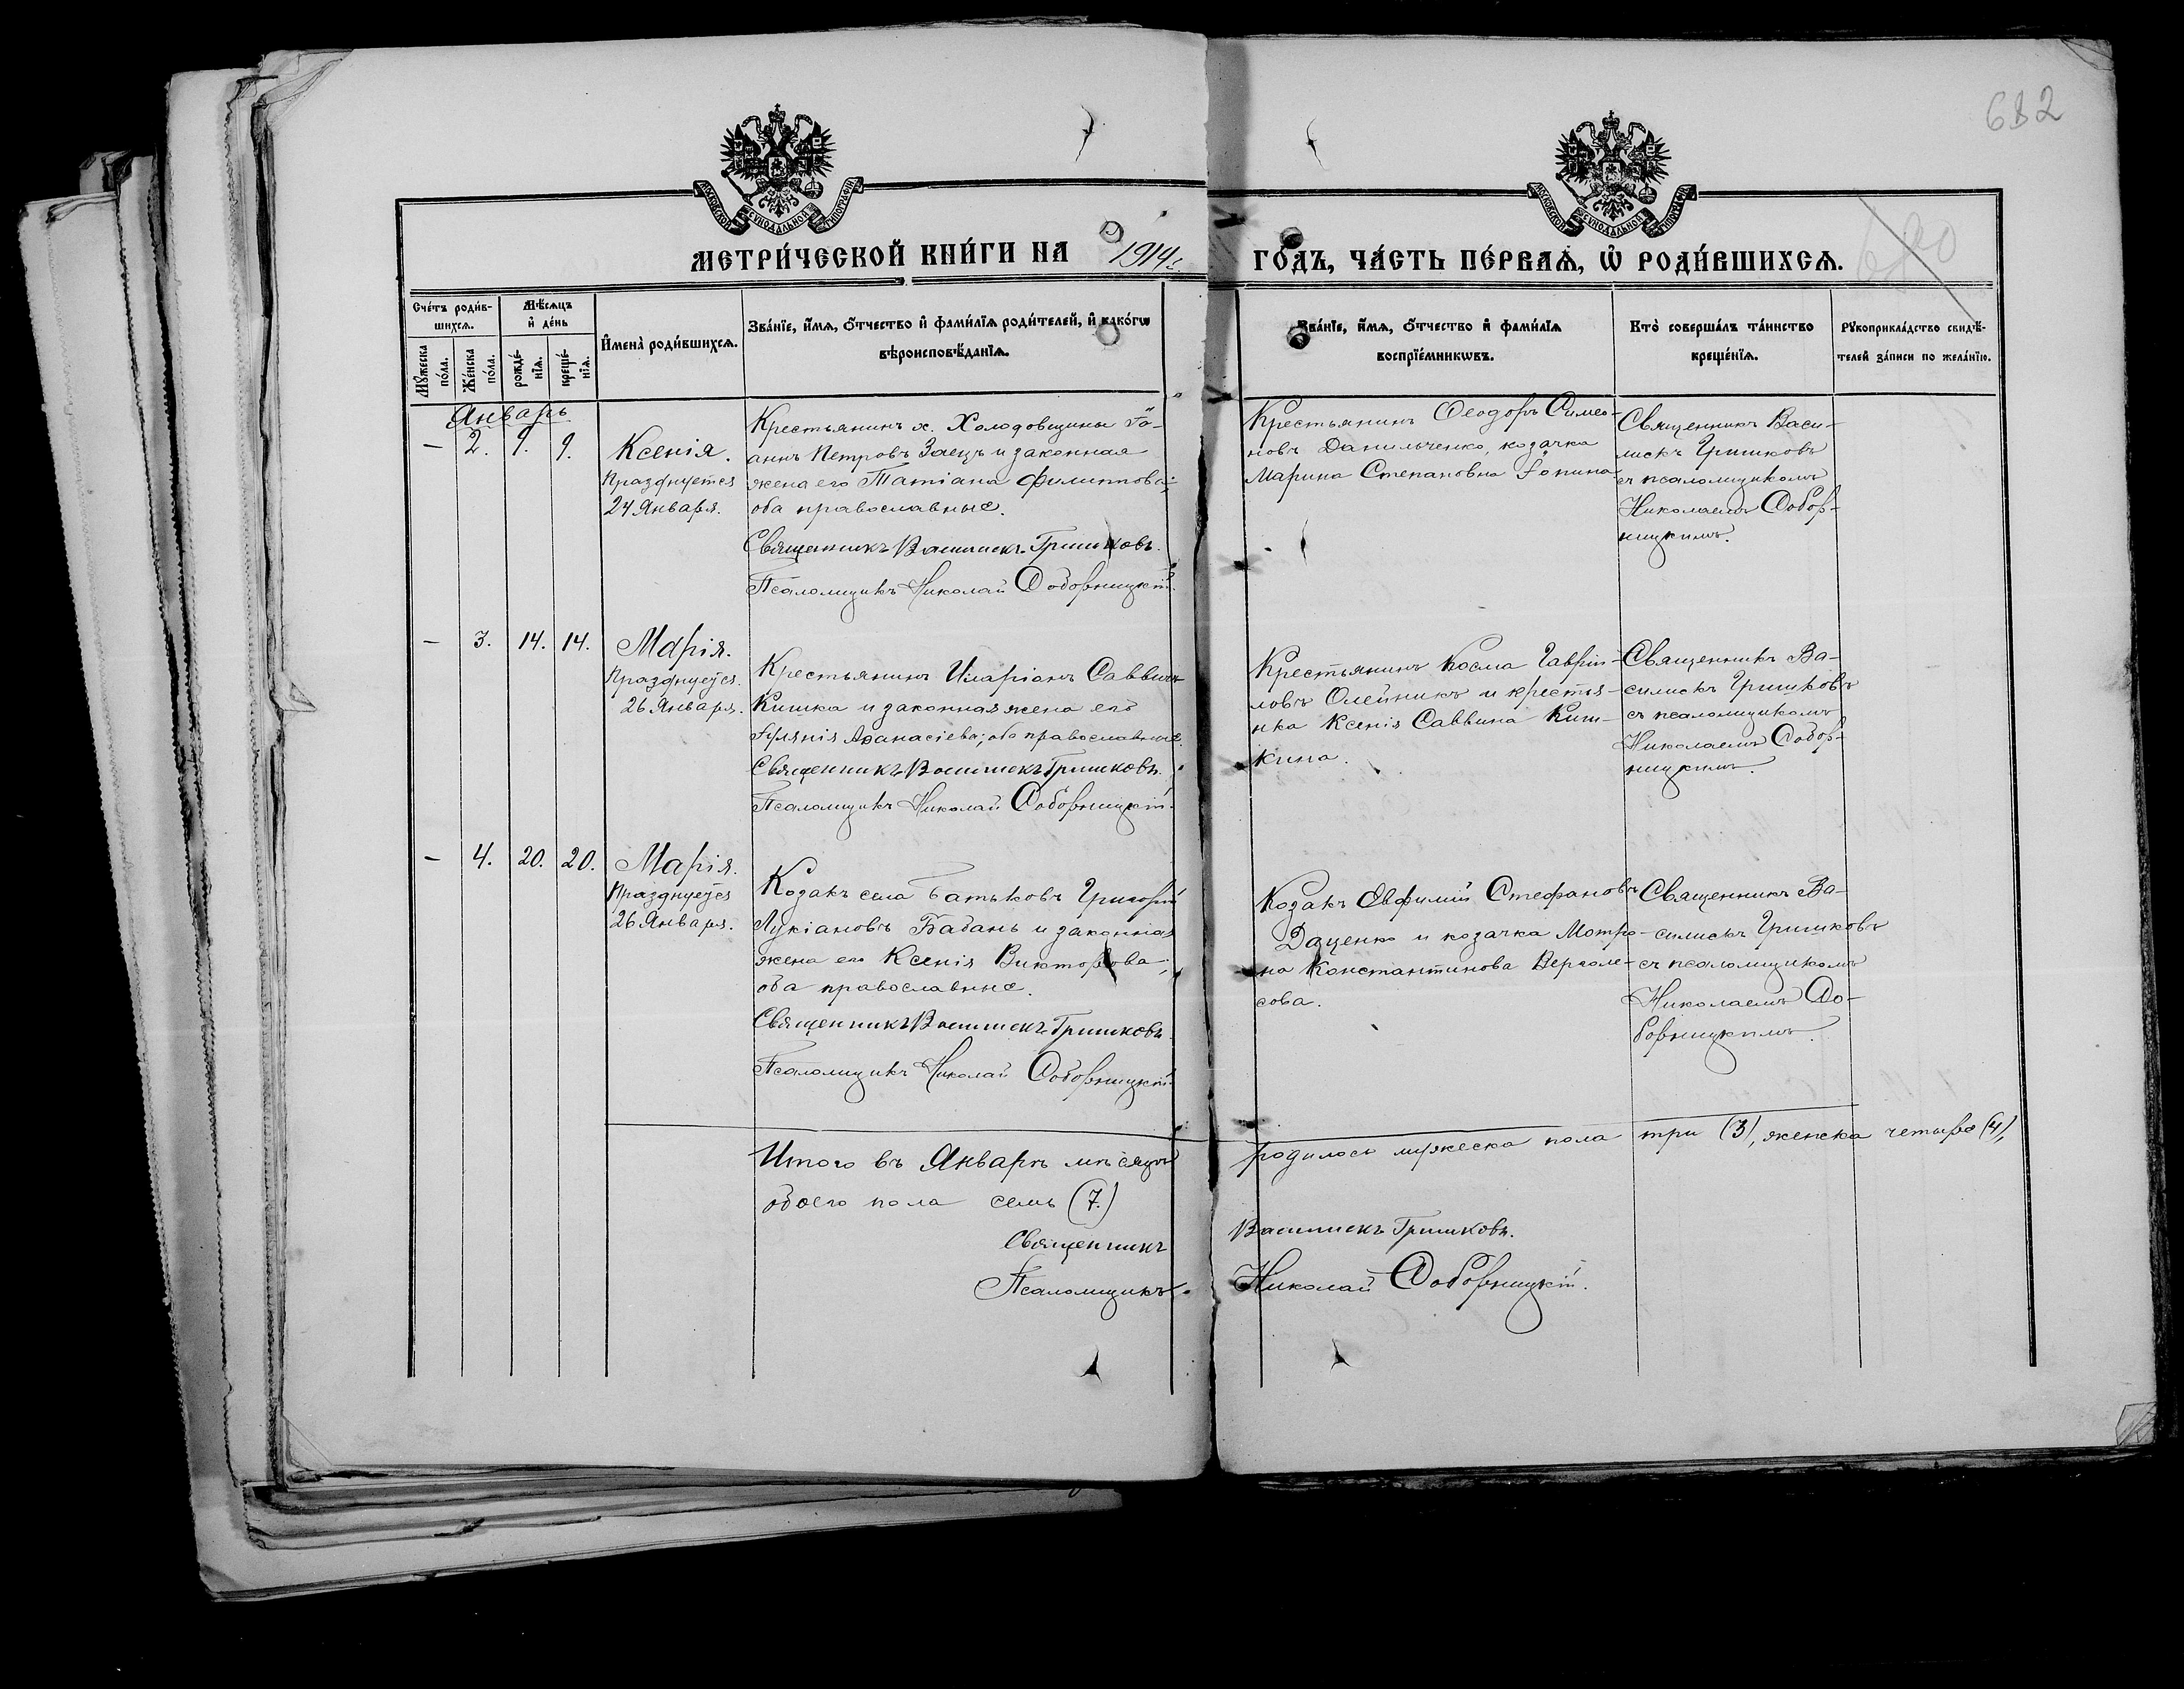 682
680
МОСКОВСКОЙ СѴНОДАЛЬНОЙ ТИПОГРАФІИ
МОСКОВСКОЙ СѴНОДАЛЬНОЙ ТИПОГРАФІИ
МЕТРИ́ЧЕСКОЙ КНИ́ГИ НА 1914 г. ГО́ДЪ, ЧА́СТЬ ПЕ́РВАѦ, Ѡ҆ РОДИ́ВШИХСѦ.
Сче́тъ роди́в-
шихсѧ.
Мꙋ́жеска по́ла.
Же́нска по́ла.
Мѣ́сѧцъ
и҆ де́нь
рожде́-
нїѧ.
креще́-
нїѧ.
И҆мена̀ роди́вшихсѧ.
Зва́нїе, и҆́мѧ, ѻ҆́тчество и҆ фами́лїѧ роди́телей, и҆ како́гѡ
вѣроисповѣ́данїѧ.
Зва́нїе, и҆́мѧ, ѻ҆́тчество и҆ фами́лїѧ
воспрїе́мникѡвъ.
Кто̀ соверша́лъ та́инство
креще́нїѧ.
Рꙋкоприкла́дство свидѣ́-
телей за́писи по жела́нїю.
Январь
— 2. 9. 9.
Ксенія.
Празднуется
24 Января.
Крестьянинъ х. Холодовщины Іо-
аннъ Петровъ Заецъ и законная
жена его Татіана Филиппова;
оба православные.
Священникъ Василискъ Гришковъ.
Псаломщикъ Николай Соборницкій.
Крестьянинъ Ѳеодоръ Симео-
новъ Данильченко, козачка
Марина Степановна
Священникъ Васи-
лискъ Гришковъ
съ псаломщикомъ
Николаемъ Собор-
ницкимъ.
— 3. 14. 14.
Марія.
Празднуется
26 Января.
Крестьянинъ Иларіонъ Саввинъ
Кишка и законная жена его
Іуліанія Аѳанасіева; оба православные.
Священникъ Василискъ Гришковъ.
Псаломщикъ Николай Соборницкій.
Крестьянинъ Косма Гаврии-
ловъ Олейникъ и крестья-
нка Ксенія Саввина Киш-
кина.
Священникъ Ва-
силискъ Гришковъ
съ псаломщикомъ
Николаемъ Собор-
ницкимъ.
— 4. 20. 20.
Марія.
Празднуется
26 Января.
Козакъ села Батьковъ Григорій
Лукіановъ Бабань и законная
жена его Ксенія Викторова;
оба православные.
Священникъ Василискъ Гришковъ
Псаломщикъ Николай Соборницкій.
Козакъ Евфимій Стефановъ
Даценко и козачка Мотро-
на Константинова Верголе-
сова.
Священникъ Ва-
силискъ Гришковъ
съ псаломщикомъ
Николаемъ Со-
борницкимъ.
Итого въ Январѣ мѣсяцѣ родилось мужеска пола три (3), женска четыре (4),
обоего пола семь (7.)
Священникъ Василискъ Гришковъ.
Псаломщикъ Николай Соборницкій.